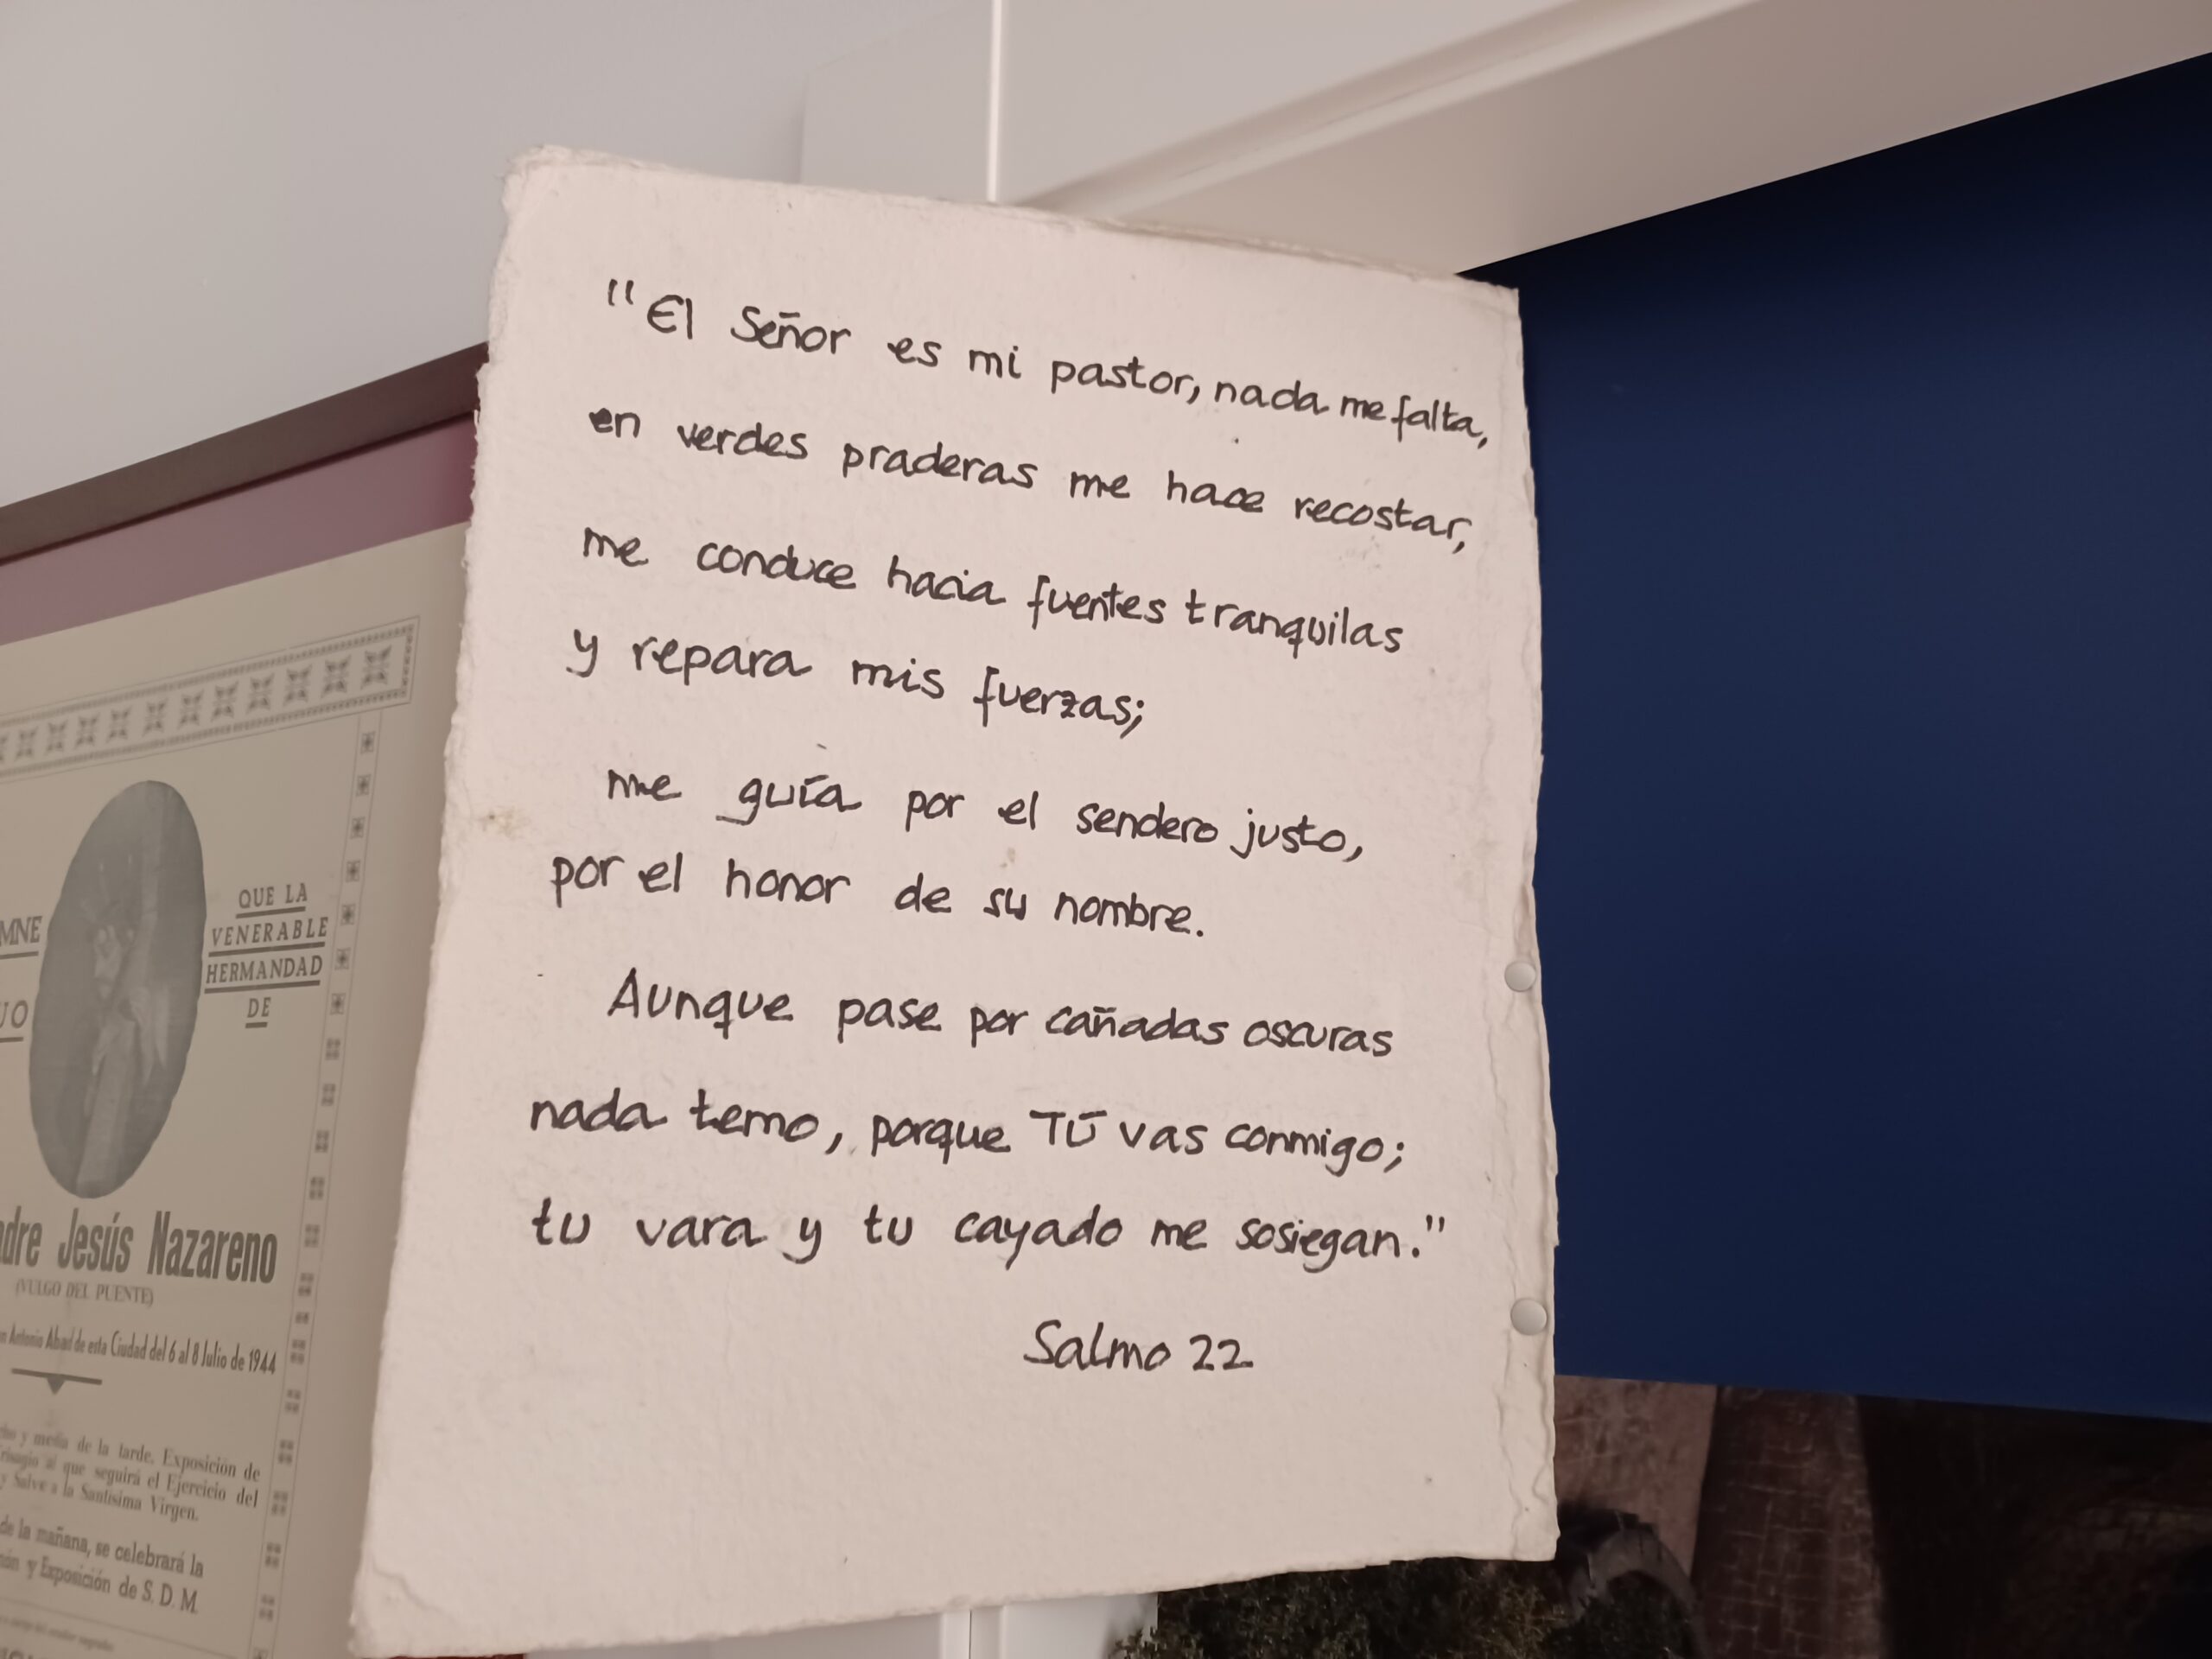 "El Señor es mi pastor, nada me falta,
en verdes praderas me hace recostar,
me conduce hacia fuentes tranquilas
y repara mis fuerzas;
me guía por el sendero justo,
por el honor de su nombre.
Aunque pase por cañadas oscuras
nada temo, porque TÚ vas conmigo;
tu vara y tu cayado me sosiegan."
Salmo 22
QUE LA
VENERABLE
HERMANDAD
DE
Jesús Nazareno
(VULGO DEL PUENTE)
Antonio Abad de esta Ciudad del 6 al 8 Julio de 1944
y media de la tarde, Exposición de
al que seguirá el Ejercicio del
y Salve a la Santísima Virgen.
de la mañana, se celebrará la
y Exposición de S. D. M.